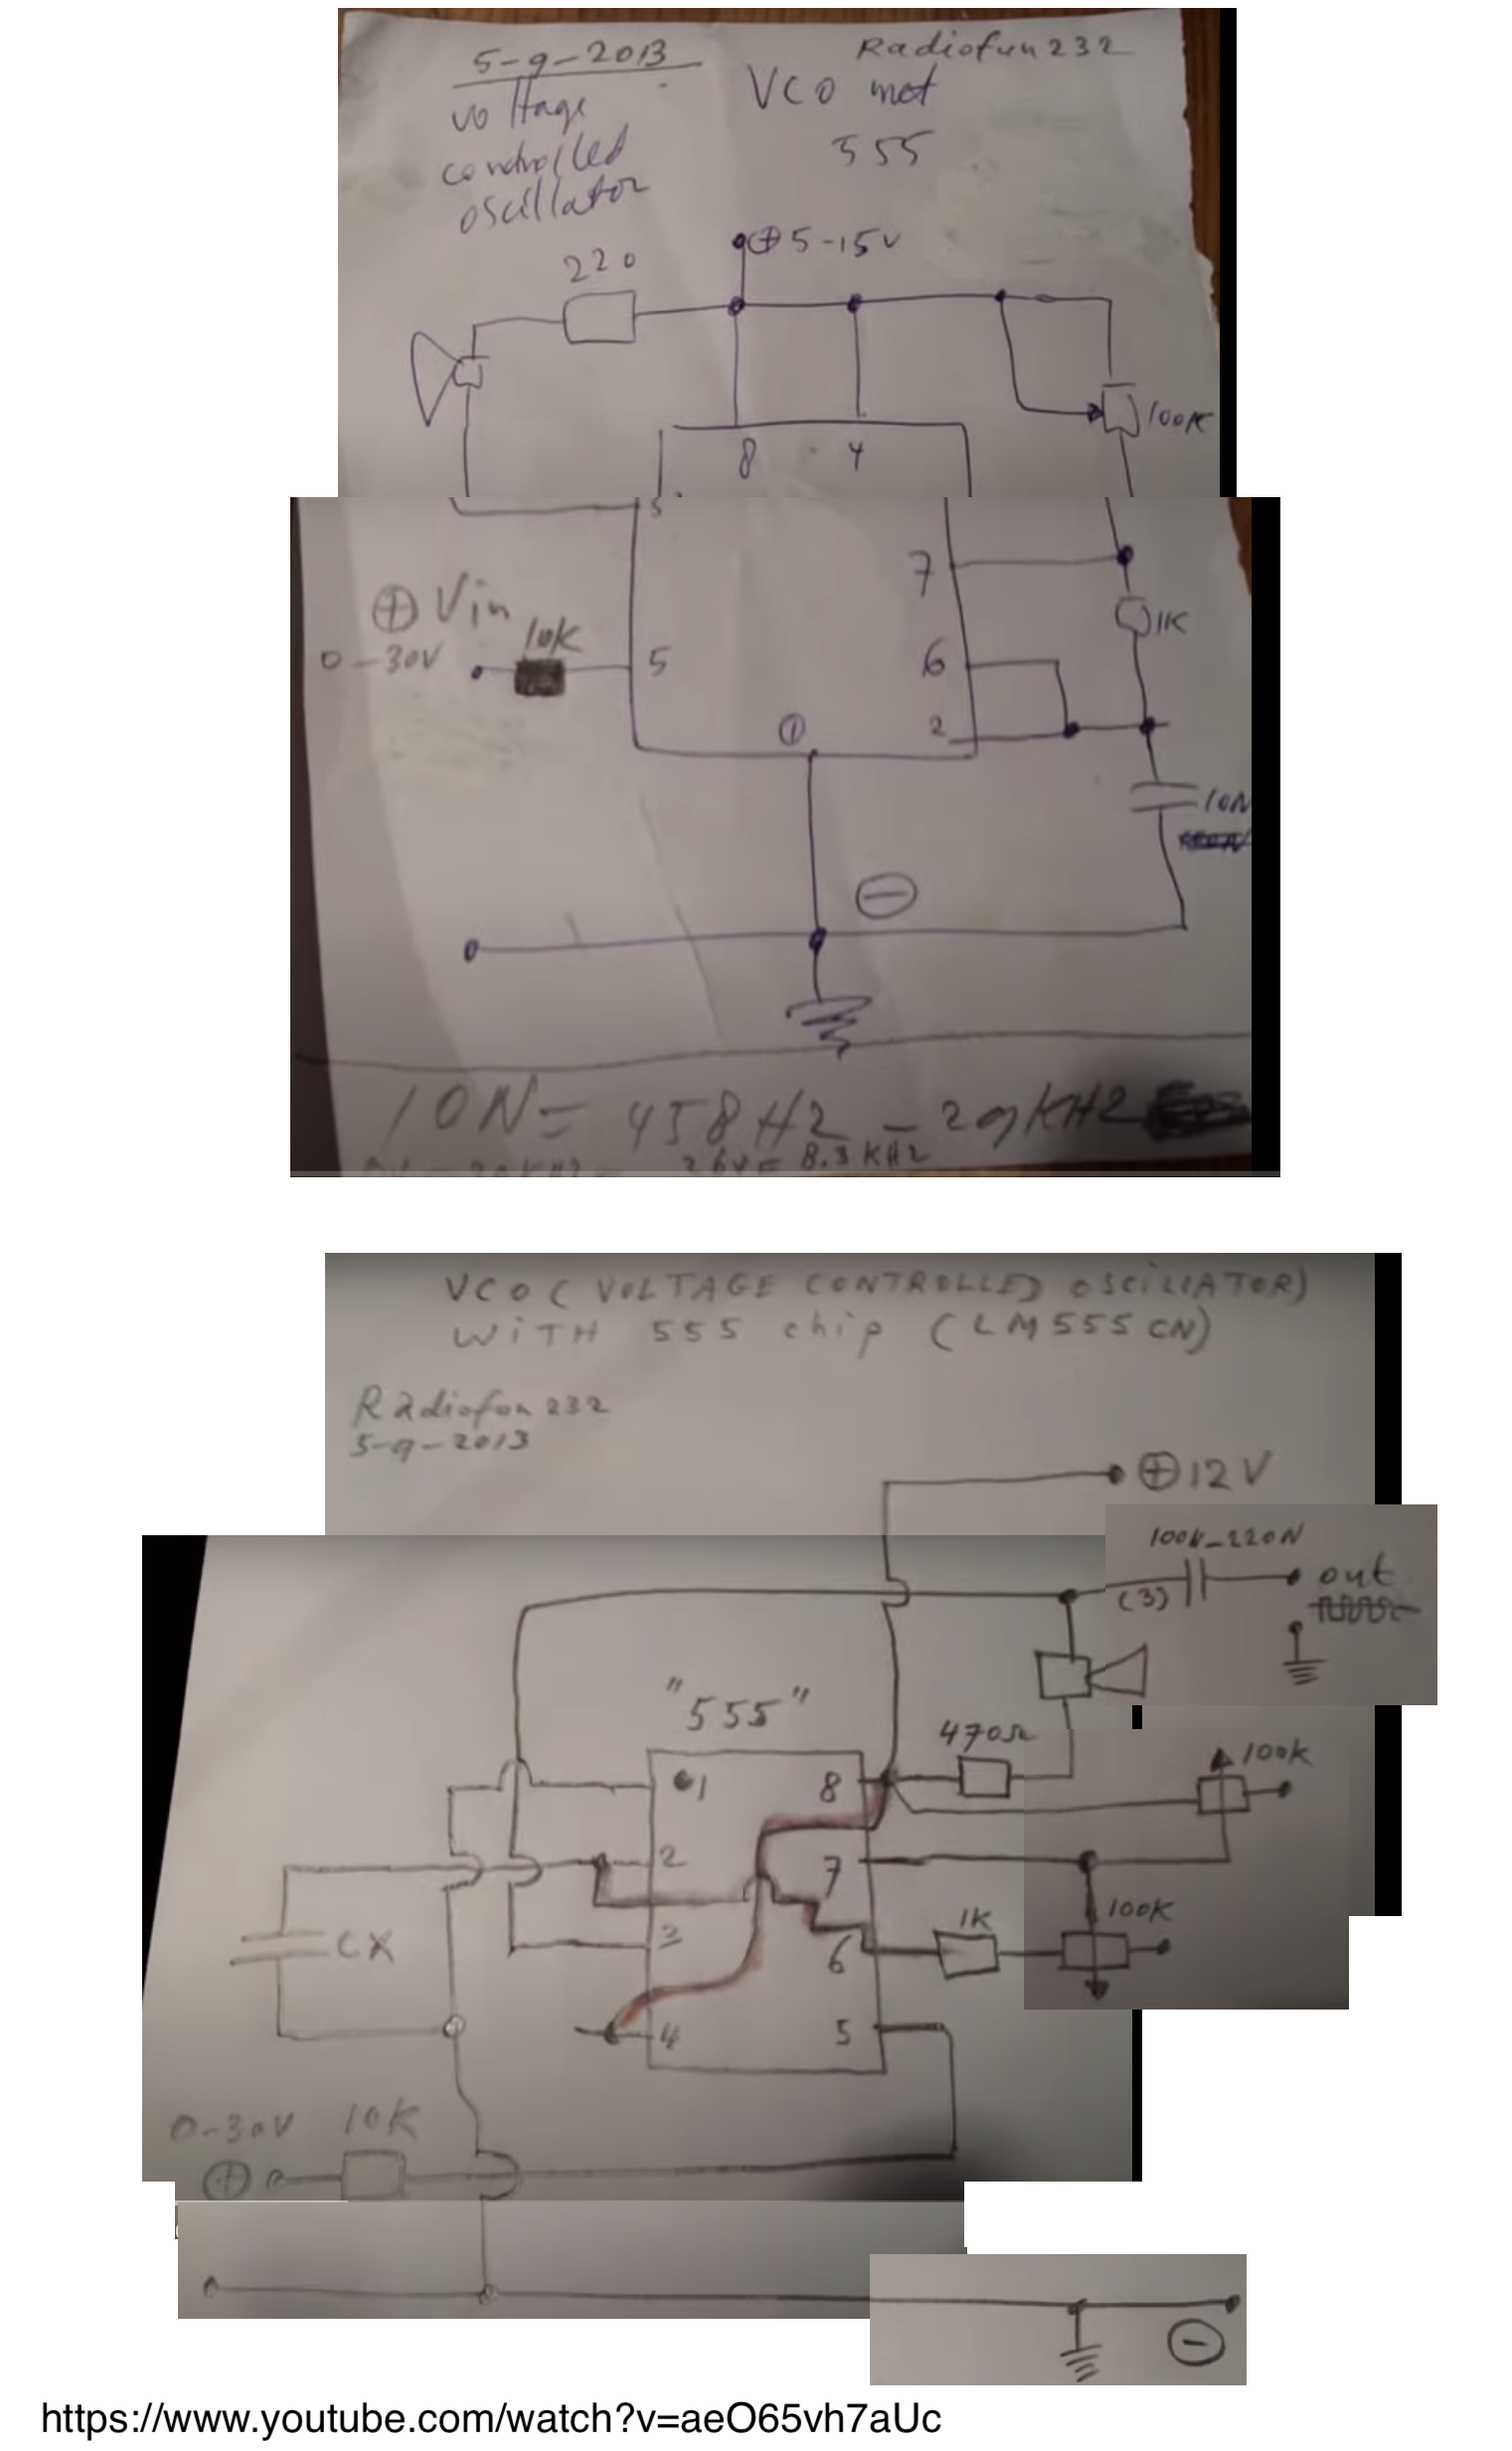 5-9-2013
Radiofun232
voltage
controlled
oscillator
VCO met
555
⊕ 5-15V
220
100K
8
4
3
7
⊕ Vin
0-30V
10K
5
1K
6
①
2
10N
⊖
10N = 458HZ - 29KHZ
26V = 8.3 KHZ
VCO (VOLTAGE CONTROLLED OSCILLATOR)
WITH 555 chip (LM555CN)
Radiofun232
5-9-2013
⊕ 12V
100N-220N
(3)
out
"555"
470Ω
100K
1
8
2
7
CX
3
6
1K
100K
4
5
0-30V
10K
⊕
⊖
https://www.youtube.com/watch?v=aeO65vh7aUc